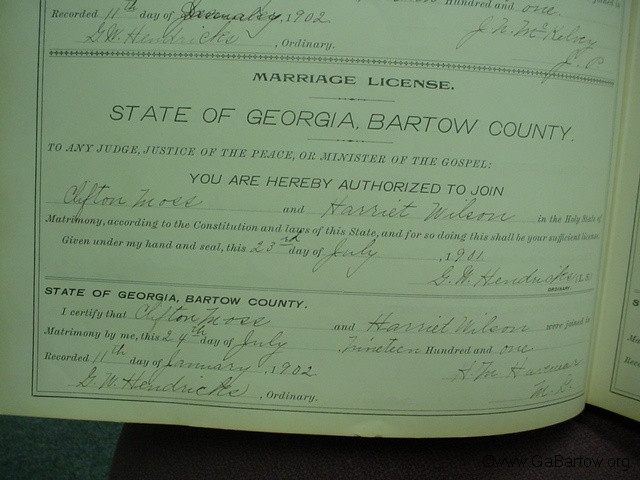 Hundred and one.
Recorded 11th day of January, 1902
J. N. McKelvey
G.W. Hendricks, Ordinary.
J. P.
MARRIAGE LICENSE.
STATE OF GEORGIA, BARTOW COUNTY.
TO ANY JUDGE, JUSTICE OF THE PEACE, OR MINISTER OF THE GOSPEL:
YOU ARE HEREBY AUTHORIZED TO JOIN
Clifton Moss and Harriet Wilson in the Holy State of
Matrimony, according to the Constitution and laws of this State, and for so doing this shall be your sufficient license.
Given under my hand and seal, this 23rd day of July, 1901
G.W. Hendricks
ORDINARY.
STATE OF GEORGIA, BARTOW COUNTY.
I certify that Clifton Moss and Harriet Wilson were joined in
Matrimony by me, this 24th day of July nineteen Hundred and one
Recorded 11th day of January, 1902
G.W. Hendricks, Ordinary.
M. G.
©www.GaBartow.org